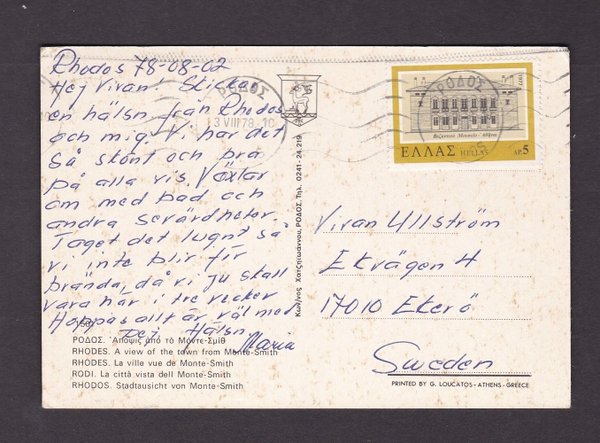 Rhodos 78-08-02
Hej Vivan! Skickar
en hälsn från Rhodos
och mig. Vi har det
så skönt och bra
på alla vis. Växlar
om med bad och
andra sevärdheter.
Taget det lugnt så
vi inte blir för
brända, då vi ju skall
vara här i tre veckor
Hoppas allt är väl med
Dej. Hälsn.
Maria
ΡΟΔΟΣ. Ἄποψις ἀπό τό Μόντε-Σμίθ
RHODES. A view of the town from Monte-Smith
RHODES. La ville vue de Monte-Smith
RODI. La città vista dell Monte-Smith
RHODOS. Stadtausicht von Monte-Smith
ΡΟΔΟΣ
3 VIII 78
Κων/νος Χατζηϊωάννου, ΡΟΔΟΣ, Τηλ. 0241-24.219
1977
ΡΟΔΟΣ
Βυζαντινό Μουσείο - Αθήνα
ΕΛΛΑΣ HELLAS ΔΡ. 5
Vivan Ullström
Ekvägen 4
17010 Ekerö
Sweden
PRINTED BY G. LOUCATOS - ATHENS - GREECE